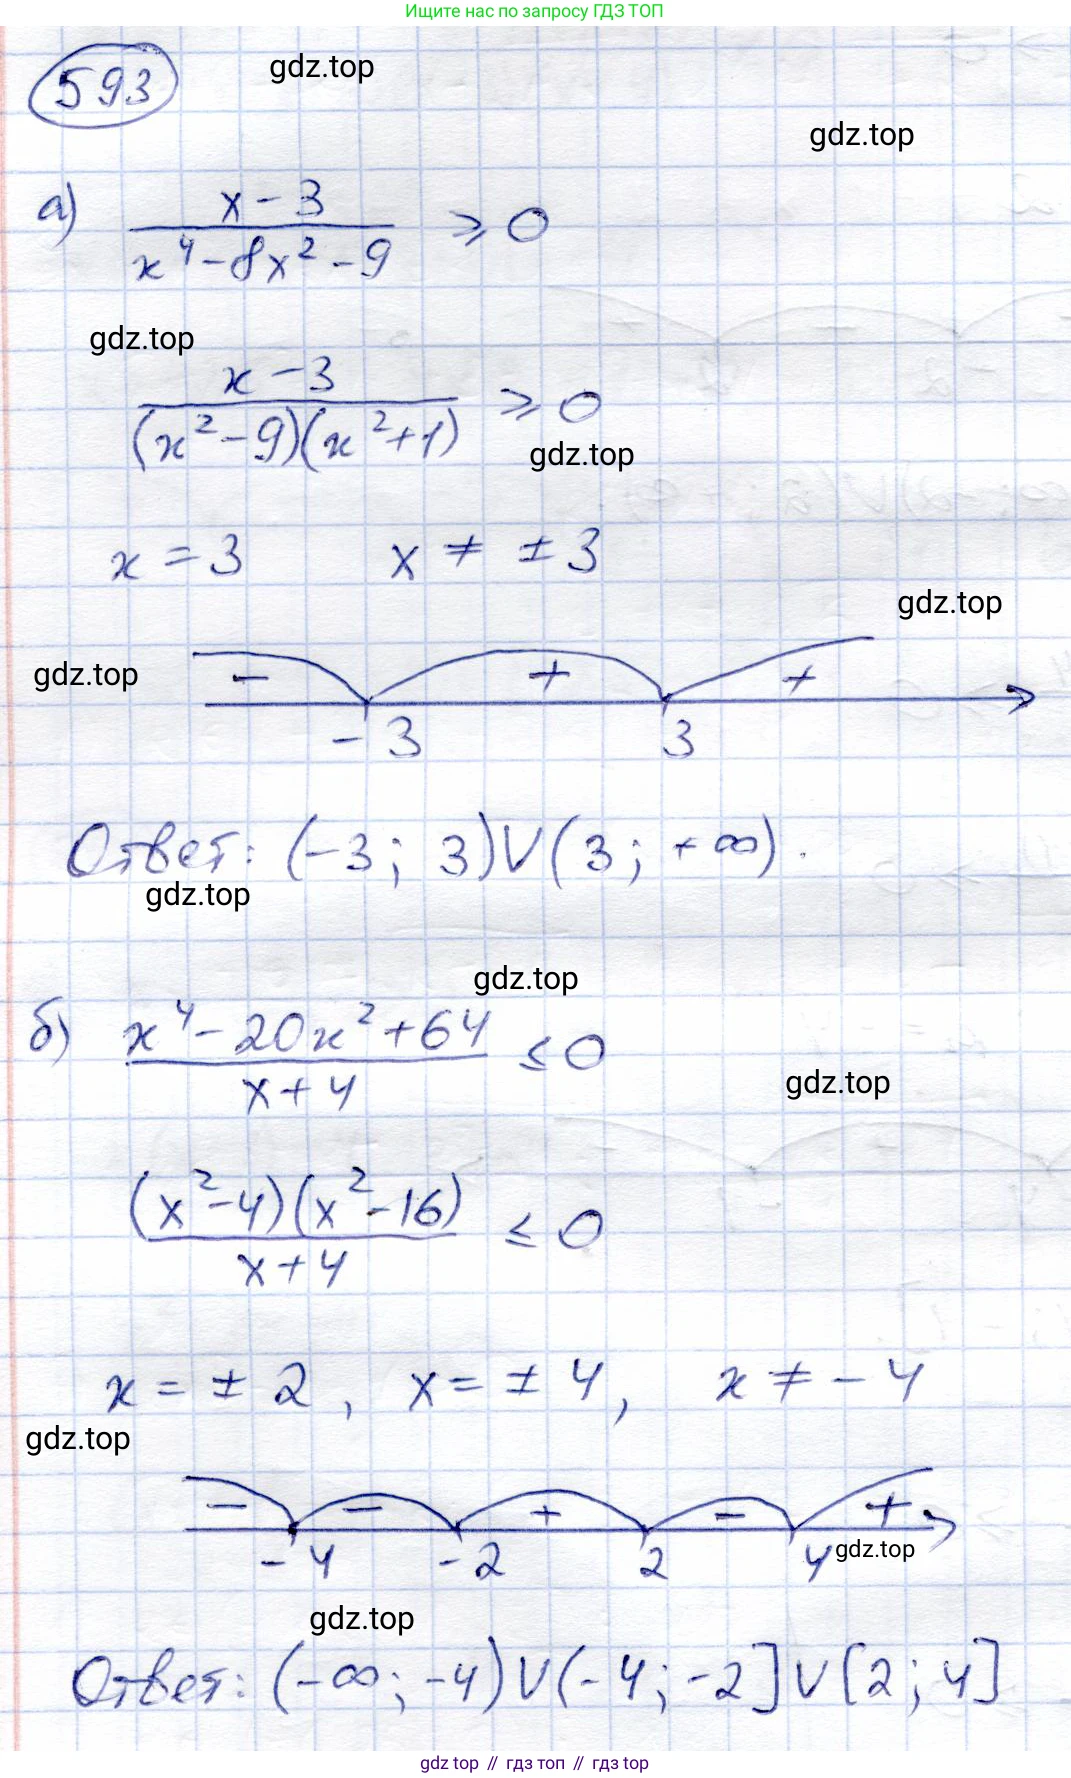 Ищите нас по запросу ГДЗ ТОП
593
gdz.top
gdz.top
а) (x-3)/(x⁴-8x²-9) ⩾ 0
gdz.top
(x-3)/((x²-9)(x²+1)) ⩾ 0
gdz.top
x = 3 x ≠ ± 3
gdz.top
gdz.top
- + +
-3 3
Ответ: (-3; 3)∪(3; +∞).
gdz.top
gdz.top
б) (x⁴-20x²+64)/(x+4) ≤ 0
gdz.top
((x²-4)(x²-16))/(x+4) ≤ 0
x = ± 2, x = ± 4, x ≠ -4
gdz.top
- - + - +
-4 -2 2 4
gdz.top
gdz.top
Ответ: (-∞; -4)∪(-4; -2]∪[2; 4]
gdz top // гдз топ // гдз top